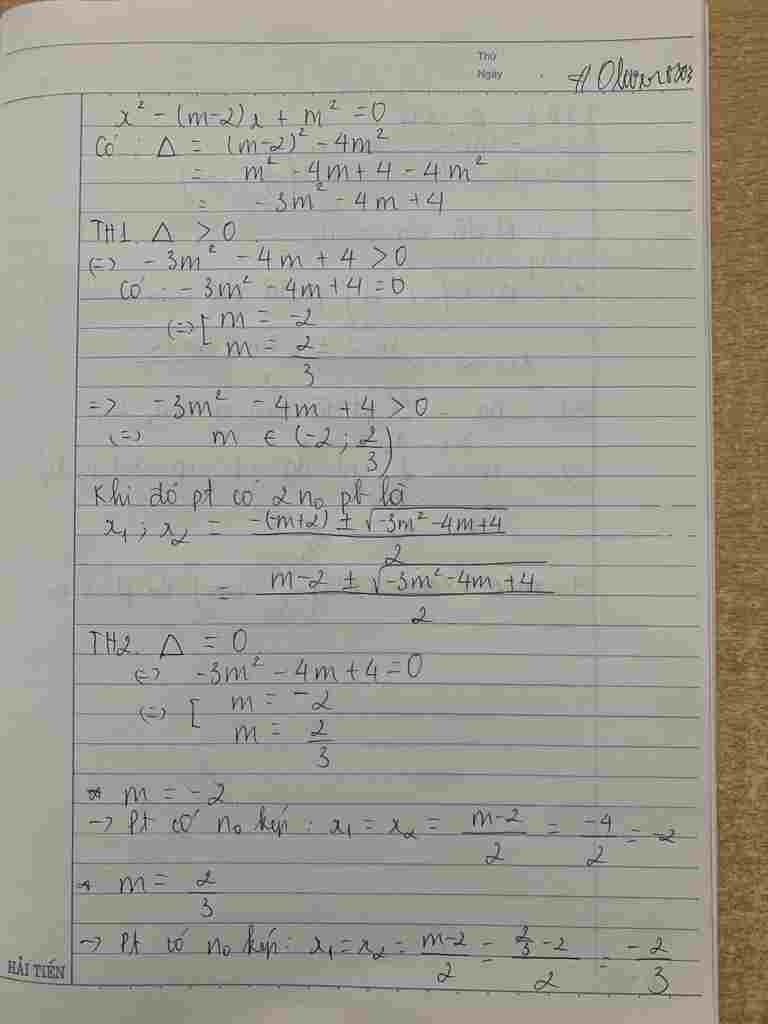 Thứ
Ngày
x² - (m-2)x + m² = 0
Có : Δ = (m-2)² - 4m²
= m² - 4m + 4 - 4m²
= -3m² - 4m + 4
TH1. Δ > 0
(=) -3m² - 4m + 4 > 0
Có : -3m² - 4m + 4 = 0
(=) [ m = -2
m = 2/3
=> -3m² - 4m + 4 > 0
(=) m ∈ (-2 ; 2/3)
Khi đó pt có 2 no pb là
x₁ ; x₂ = (-(-m+2) ± √(-3m² - 4m + 4))/2
= (m-2 ± √(-3m² - 4m + 4))/2
TH2. Δ = 0
(=) -3m² - 4m + 4 = 0
(=) [ m = -2
m = 2/3
* m = -2
-> Pt có no kép : x₁ = x₂ = (m-2)/2 = -4/2 = -2
* m = 2/3
-> Pt có no kép : x₁ = x₂ = (m-2)/2 = (2/3 - 2)/2 = -2/3
HẢI TIẾN